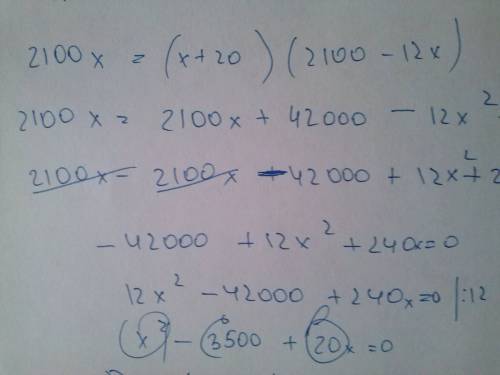 2100x = (x+20)(2100 - 12x)
2100x = 2100x + 42000 - 12x²
2100x - 2100x - 42000 + 12x² + 2
-42000 + 12x² + 240x=0
12x² - 42000 + 240x=0 |:12
x² - 3500 + 20x=0